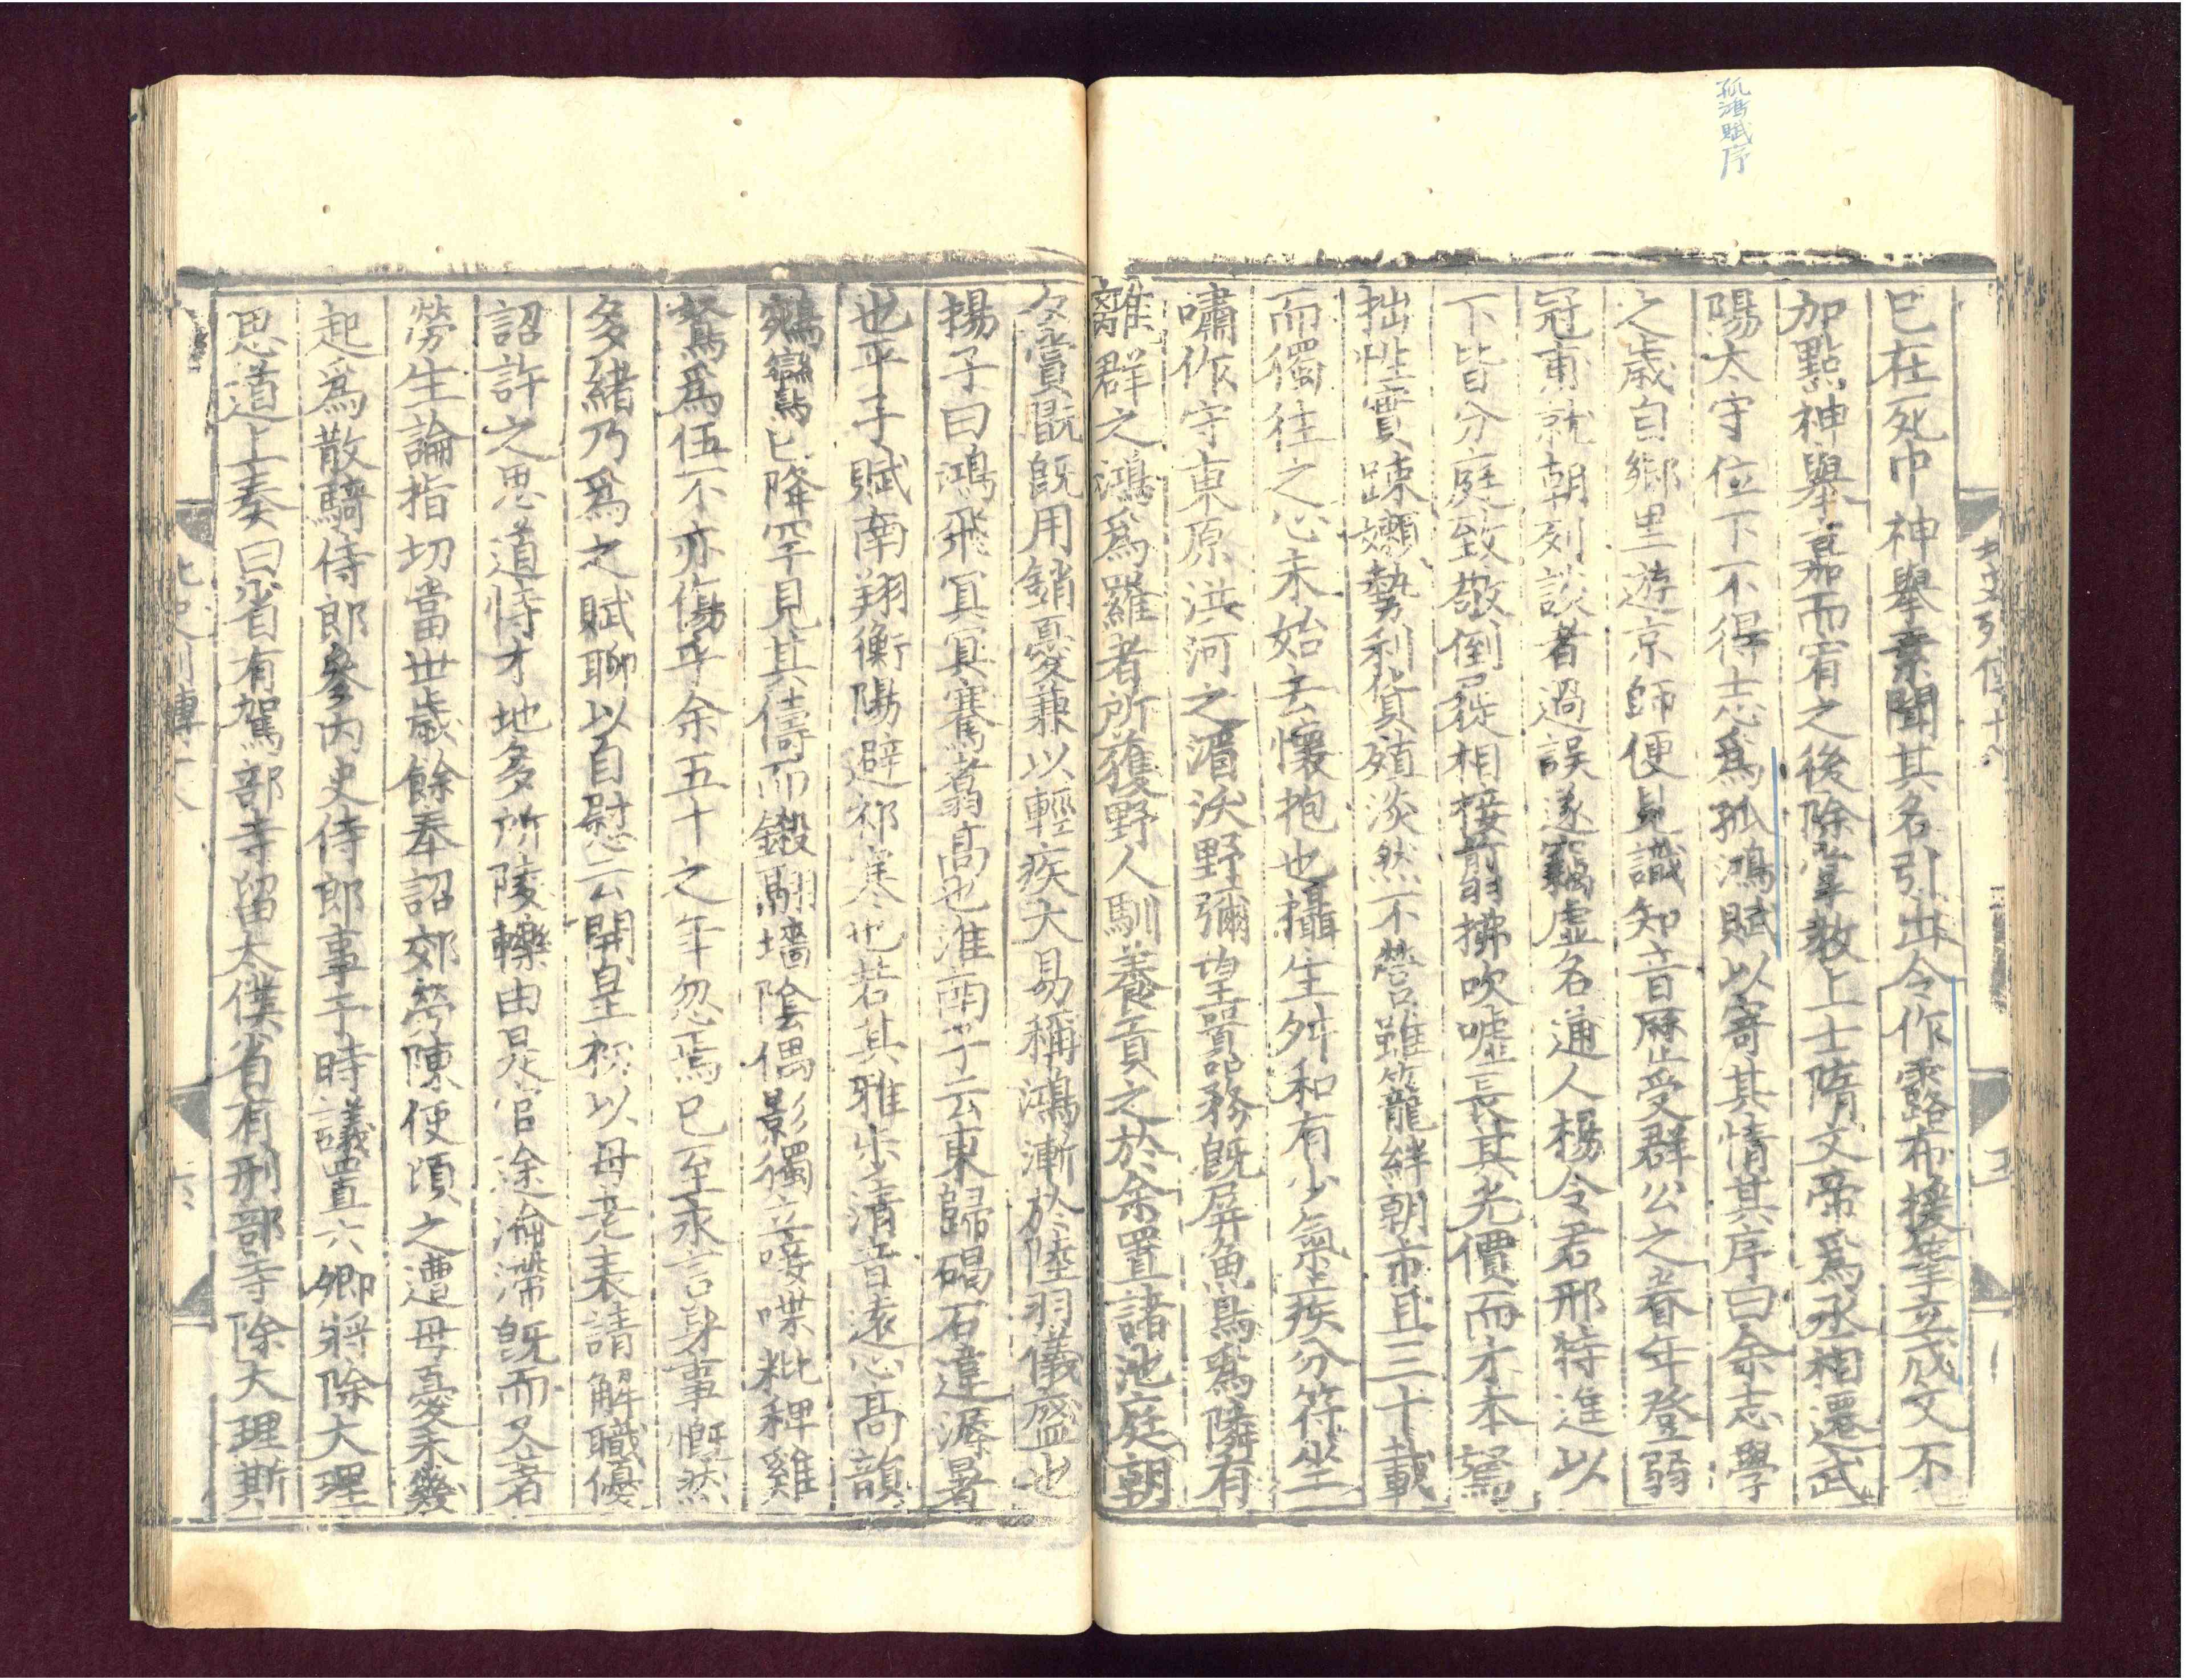 孤鴻賦序
已在死中神舉素聞其名引出令作露布援筆立成文不
加點神舉嘉而宥之後除掌教上士隋文帝爲丞相遷武
陽太守位下不得志爲孤鴻賦以寄其情其序曰余志學
之歲自鄉里遊京師便見識知音歷受群公之眷年登弱
冠甫就朝列談者過誤遂竊虛名通人楊令君邢特進以
下皆分庭致敬倒屣相接翦拂吹噓長其光價而才本駑
拙性實踈嬾勢利貨殖淡然不營雖籠絆朝市且三十載
而獨往之心未始去懷抱也攝生舛和有少氣疾分符坐
嘯作守東原洪河之湄沃野彌望囂務旣屏魚鳥爲隣有
離群之鴻爲羅者所獲野人馴養貢之於余置諸池庭朝
夕賞翫旣用銷憂兼以輕疾大易稱鴻漸於陸羽儀盛也
揚子曰鴻飛冥冥騫翥高也淮南子云東歸碣石違溽暑
也平子賦南翔衡陽避祁寒也若其雅步清音遠心高韻
鵷鸞已降罕見其儔而鎩翮墻陰偶影獨立唼喋粃稗雞
鶩爲伍不亦傷乎余五十之年忽焉已至永言身事慨然
多緖乃爲之賦聊以自慰云開皇初以母老表請解職優
詔許之思道恃才地多所陵轢由是官途淪滯旣而又著
勞生論指切當世歲餘奉詔郊勞陳使頃之遭母憂未幾
起爲散騎侍郎參內史侍郎事于時議置六卿將除大理
思道上奏曰省有駕部寺留太僕省有刑部寺除大理斯
北史列傳十八
六